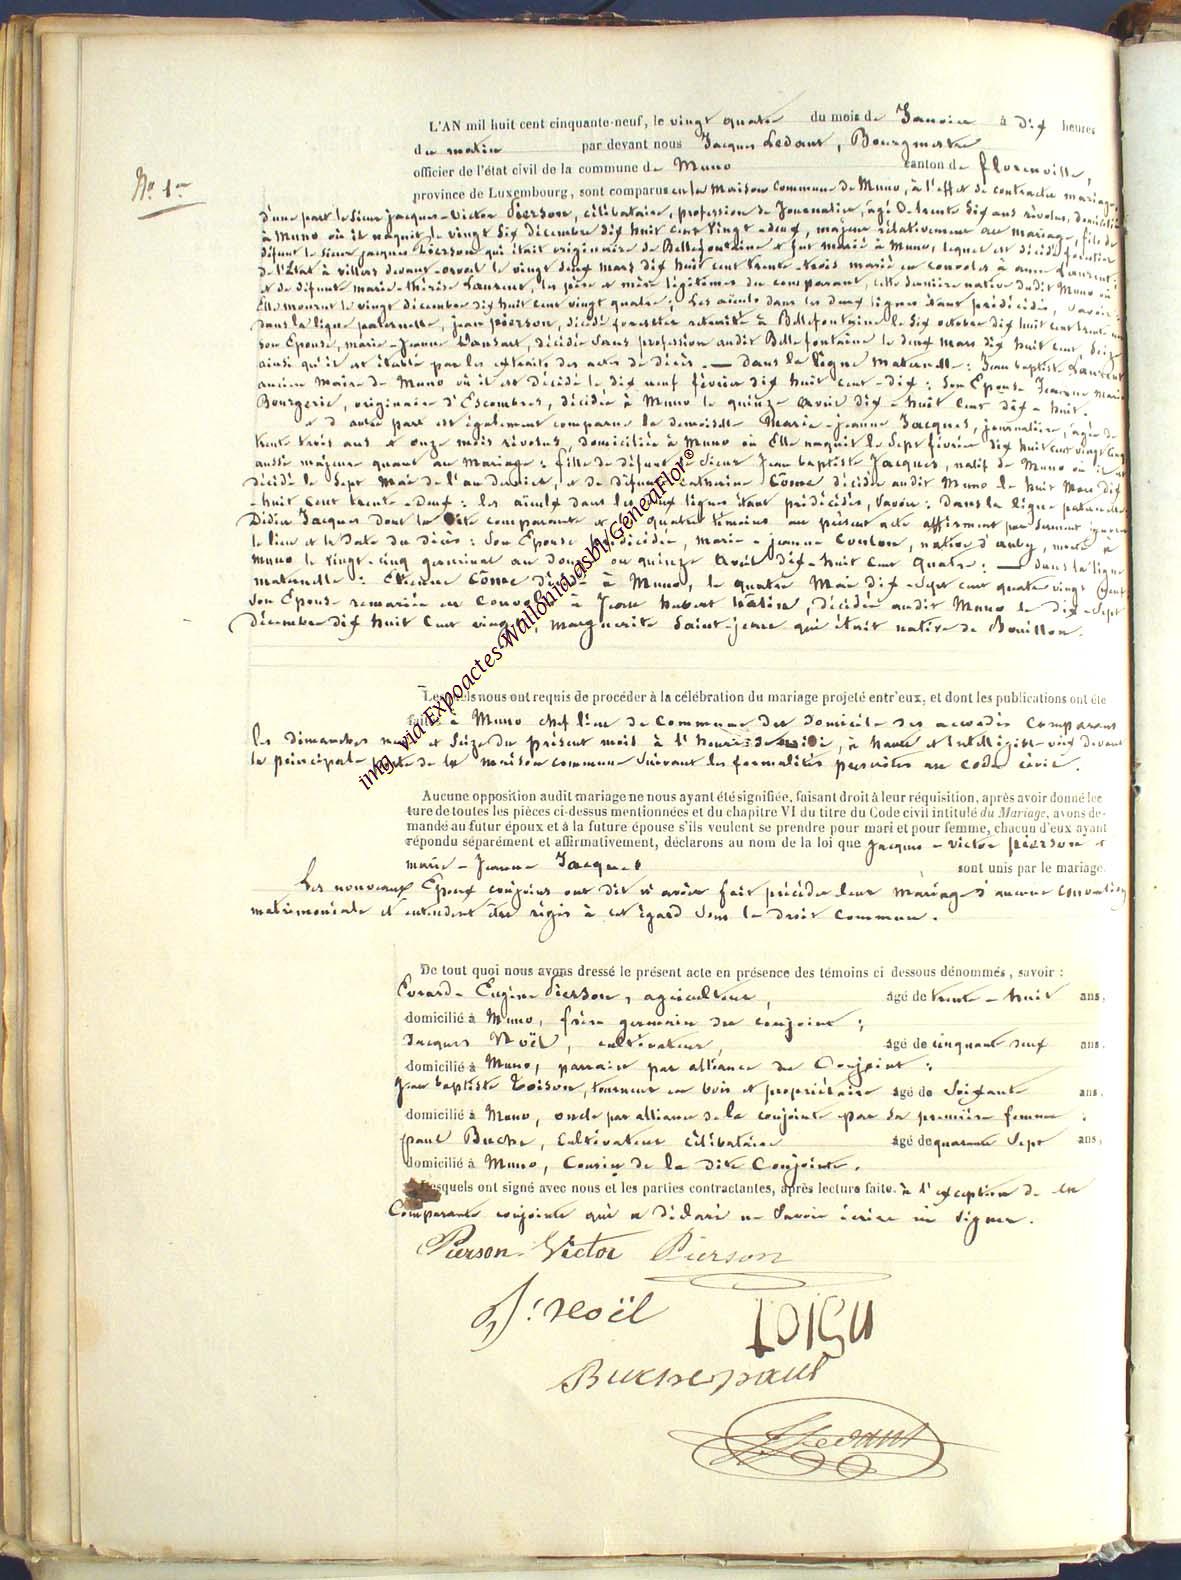 L'AN mil huit cent cinquante-neuf, le vingt quatre du mois de Janvier à dix heures
du matin par devant nous Jacques Ledant, Bourgmestre
officier de l'état civil de la commune de Muno canton de florenville,
N° 1er
province de Luxembourg, sont comparus en la Maison Commune de Muno, à l'effet de contracter mariage,
d'une part le sieur jacques-victor Pierson, célibataire, profession de Journalier, âgé de trente six ans révolus, domicilié
à Muno où il naquit le vingt six décembre dix huit cent vingt-deux, majeur relativement au mariage, fils de
défunt le sieur jacques Pierson qui était originaire de Bellefontaine et fut marié à Muno, lequel est décédé forestier
de l'État à villers devant-orval le vingt deux mars dix huit cent trente-trois marié en convoles à anne Laurent;
et de défunte marie-thérèse Laurent, les père et mère légitimes du comparant, cette dernière native dudit Muno où
Elle mourut le vingt décembre dix huit cent vingt quatre; Les aïeuls dans les deux lignes étant prédécédés, savoir:
dans la ligne paternelle, jean pierson, décédé forestier retraité à Bellefontaine le six octobre dix huit cent trente un
son Epouse, marie-Jeanne Lansart, décédée sans profession audit Bellefontaine le deux mars dix huit cent seize
ainsi qu'il est établi par les extraits des actes de décès. — dans la ligne maternelle: Jean baptiste Laurent
ancien Maire de Muno où il est décédé le dix neuf février dix huit cent-dix; son Epouse Jeanne Marie
Bourgerie, originaire d'Escombres, décédée à Muno le quinze avril dix-huit cent dix-huit.
et d'autre part est également comparue la demoiselle Marie-jeanne Jacques, journalière, âgée de
trente trois ans et onze mois révolus, domiciliée à Muno où Elle naquit le sept février dix huit cent vingt cinq
aussi majeure quant au Mariage: fille de défunt le sieur Jean baptiste Jacques, natif de Muno où il est
décédé le sept Mai de l'an dernier, et de défunte Catherine Côme décédée audit Muno le huit Mars dix
-huit cent trente-deux: les aïeulx dans les deux lignes étant prédécédés, savoir: dans la ligne paternelle
Didier Jacques dont la dite comparante et les quatre témoins au présent acte affirment par serment ignorer
le lieu et la date du décès: son Epouse prédécédée, marie-jeanne Coulon, native d'auby, morte à
muno le vingt-cinq germinal an douze ou quinze Avril dix-huit cent quatre: — dans la ligne
maternelle: Etienne Côme décédé à Muno, le quatre Mai dix-sept cent quatre vingt
son Epouse remariée en Convoles à Jean hubert hatise, décédée audit Muno le dix-sept
décembre dix huit cent vingt, Marguerite Saint-jean qui était native de Bouillon.
Lesquels nous ont requis de procéder à la célébration du mariage projeté entr'eux, et dont les publications ont été
faites à Muno chef lieu de Commune du domicile des accordés Comparans
les dimanches neuf et seize du présent mois à l'heure de midi, à haute et intelligible voix devant
la principale porte de la maison commune suivant les formalités prescrites au code civil.
Aucune opposition audit mariage ne nous ayant été signifiée, faisant droit à leur réquisition, après avoir donné lec
ture de toutes les pièces ci-dessus mentionnées et du chapitre VI du titre du Code civil intitulé du Mariage, avons de-
mandé au futur époux et à la future épouse s'ils veulent se prendre pour mari et pour femme, chacun d'eux ayant
répondu séparément et affirmativement, déclarons au nom de la loi que jacques-victor pierson et
marie-Jeanne Jacques sont unis par le mariage.
Les nouveaux Epoux conjoins ont dit n'avoir fait précéder leur Mariage d'aucune convention
matrimoniale et entendent être régis à cet égard sous le droit commun.
De tout quoi nous avons dressé le présent acte en présence des témoins ci dessous dénommés, savoir:
Evrard-Eugène Pierson, agriculteur, âgé de trente-huit ans,
domicilié à Muno, frère germain du conjoint;
Jacques Noël, cultivateur, âgé de cinquante neuf ans,
domicilié à Muno, parrain par alliance du Conjoint;
Jean baptiste Toison, tourneur en bois et propriétaire âgé de soixante ans,
domicilié à Muno, oncle par alliance de la conjointe par sa première femme;
paul Buche, Cultivateur célibataire âgé de quarante sept ans,
domicilié à Muno, Cousin de la dite Conjointe.
Lesquels ont signé avec nous et les parties contractantes, après lecture faite. à l'exception de la
Comparante conjointe qui a déclaré ne savoir écrire ni signer.
Pierson Victor Pierson
J: Noël
Buche paul
J Ledant
img via Expoactes-Walloniabasbl/GénéaFlor®